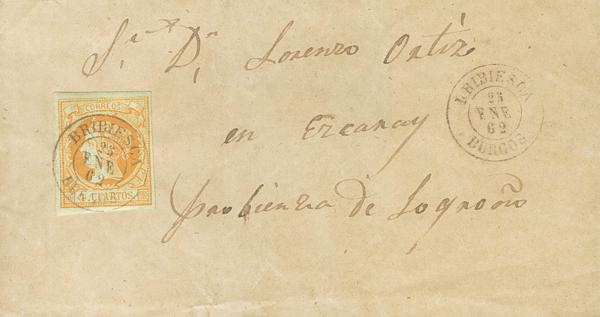 Sr. Dn. Lorenzo Ortiz
en Ezcaray
probienza de Logroño
CORREOS
BRIBIESCA
23
ENE
62
4 CUARTOS
BRIBIESCA
23
ENE
62
BURGOS